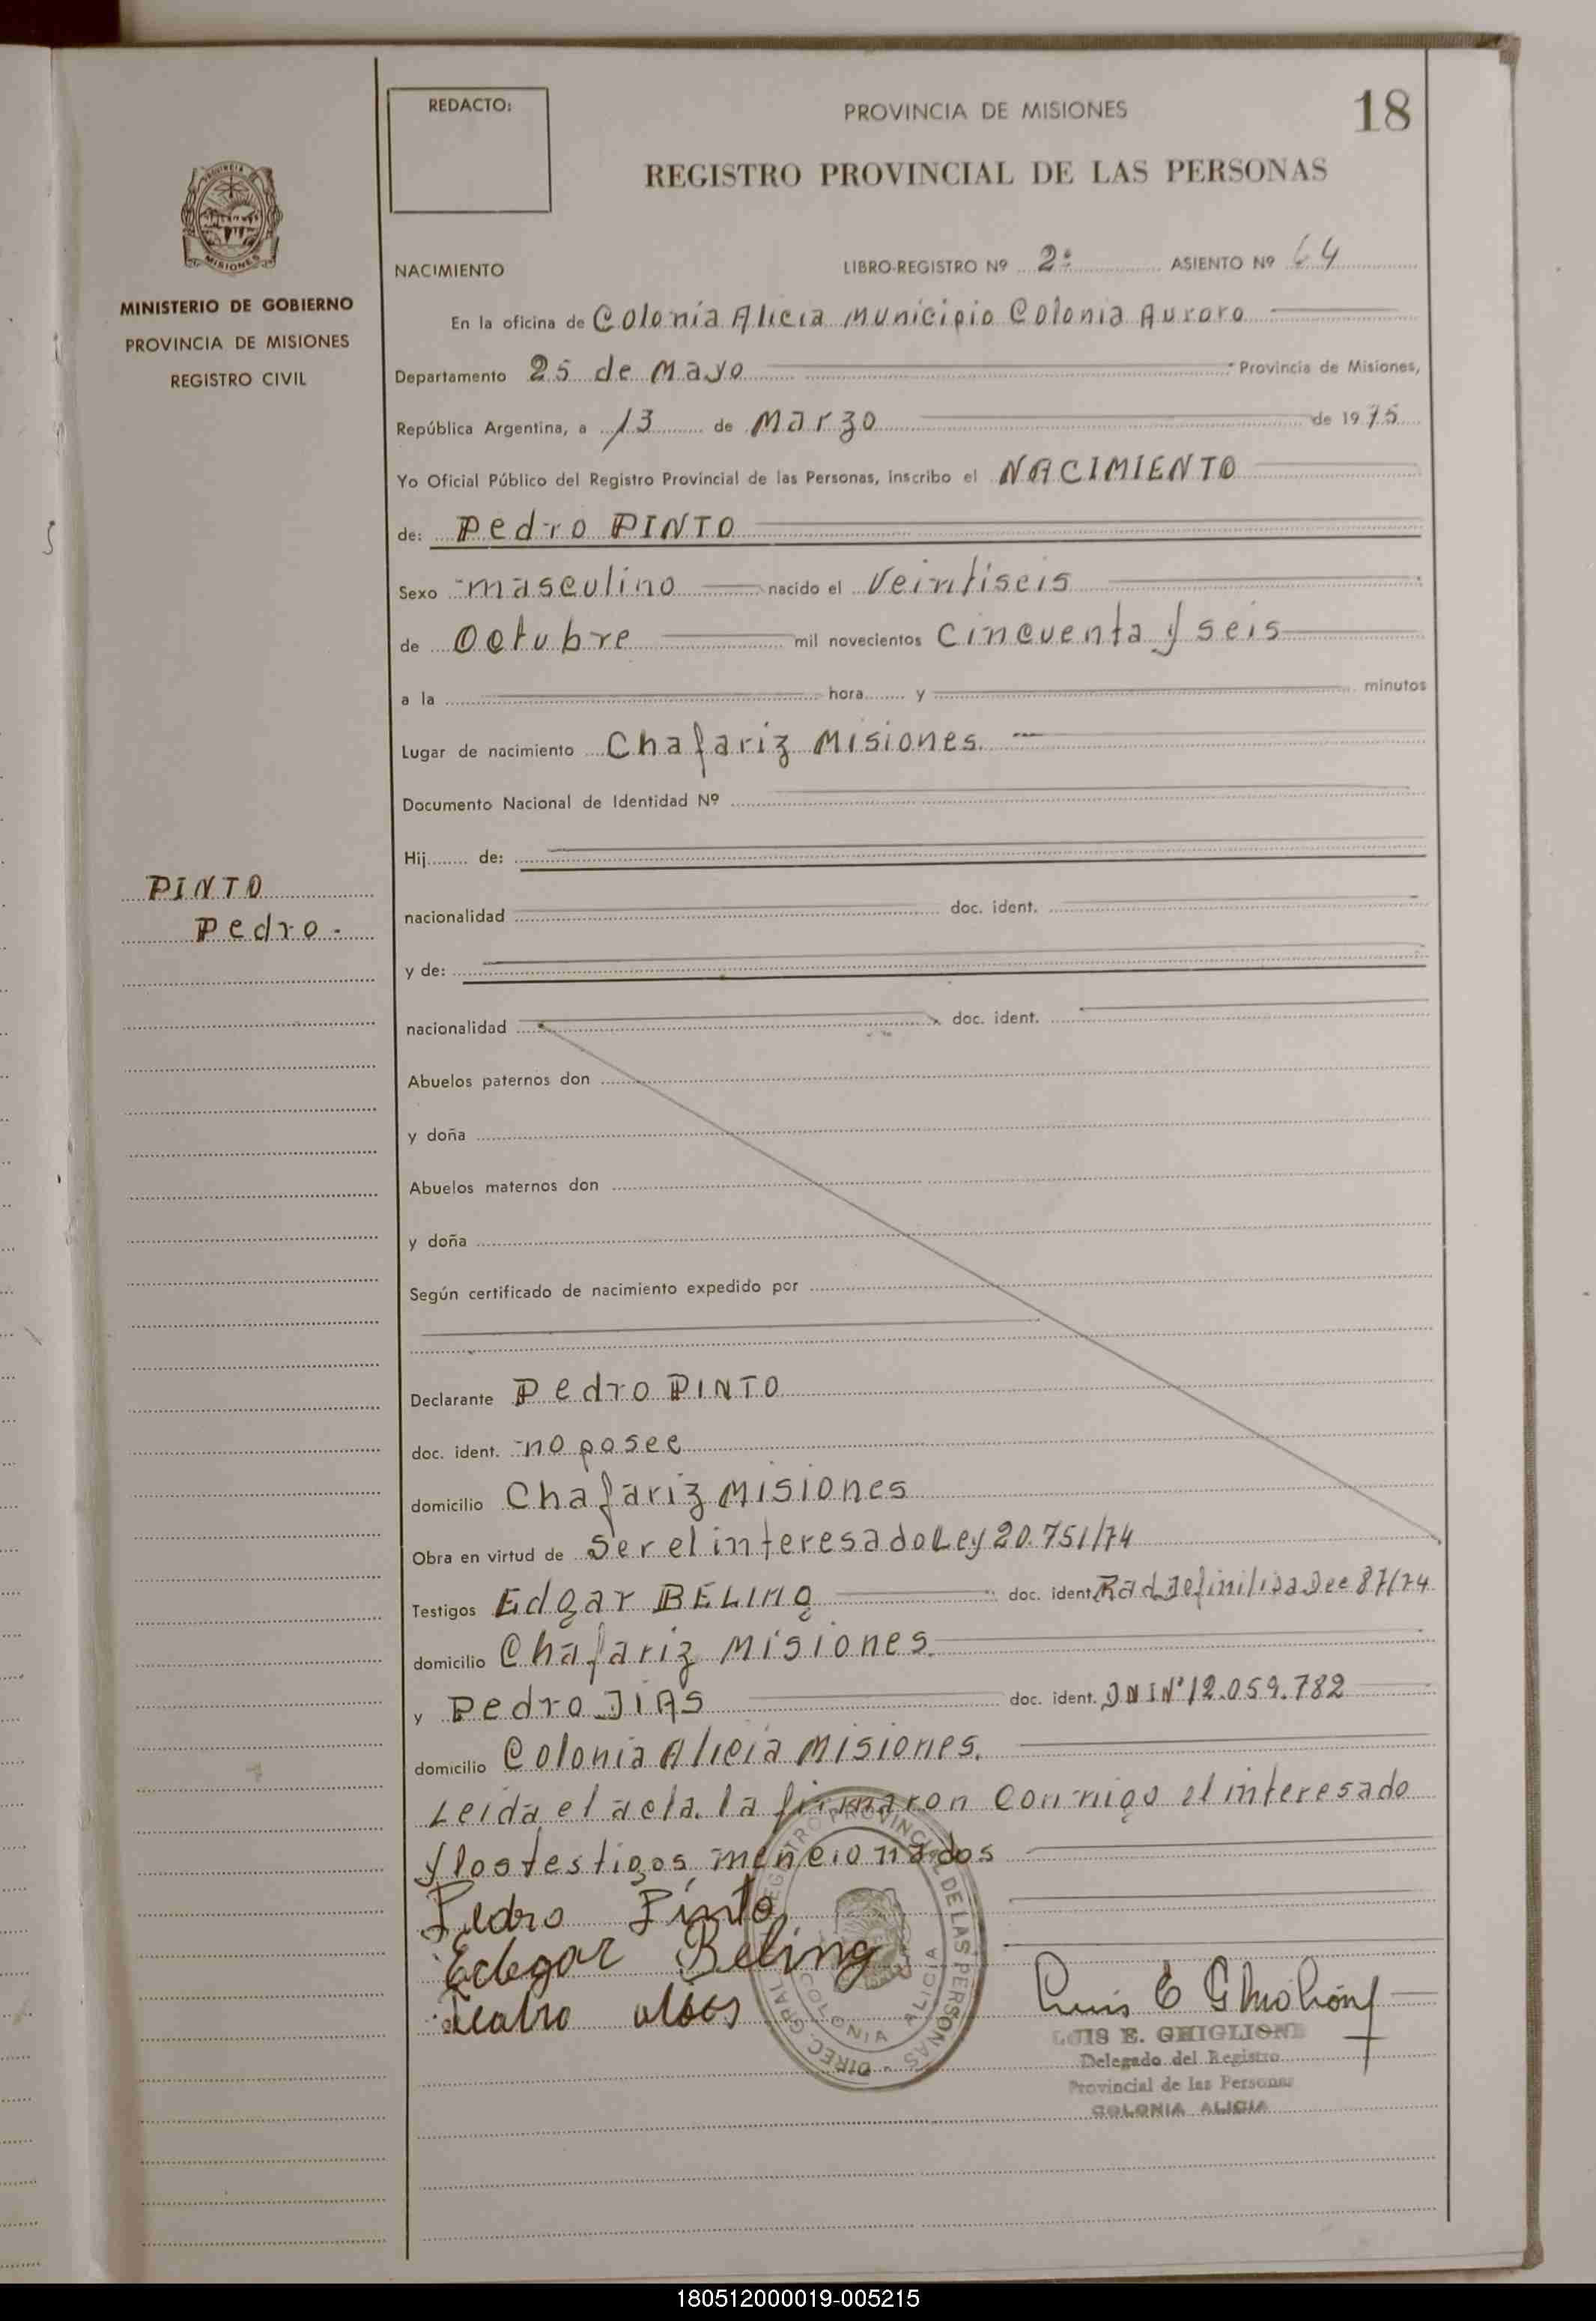 REDACTO:
PROVINCIA DE MISIONES
18
REGISTRO PROVINCIAL DE LAS PERSONAS
MISIONES
MINISTERIO DE GOBIERNO
PROVINCIA DE MISIONES
REGISTRO CIVIL
NACIMIENTO LIBRO-REGISTRO Nº 2º ASIENTO Nº 64
En la oficina de Colonia Alicia Municipio Colonia Aurora
Departamento 25 de Mayo Provincia de Misiones,
República Argentina, a 13 de Marzo de 1975
Yo Oficial Público del Registro Provincial de las Personas, inscribo el NACIMIENTO
de: Pedro PINTO
Sexo masculino nacido el Veintiseis
de Octubre mil novecientos Cincuenta y seis
a la hora y minutos
Lugar de nacimiento Chafariz Misiones.
Documento Nacional de Identidad Nº
Hij de:
PINTO
Pedro.-
nacionalidad doc. ident.
y de:
nacionalidad doc. ident.
Abuelos paternos don
y doña
Abuelos maternos don
y doña
Según certificado de nacimiento expedido por
Declarante Pedro PINTO
doc. ident. no posee
domicilio Chafariz Misiones
Obra en virtud de Ser el interesado Ley 20.751/74
Testigos Edgar BELING doc. ident. Rad Definitiva Dec 87/74
domicilio Chafariz Misiones.
y Pedro DIAS doc. ident. DNI Nº 12.059.782
domicilio Colonia Alicia Misiones.
Leida el acta, la firmaron conmigo el interesado
y los testigos mencionados
Pedro Pinto
Edegar Beling
DIREC. GRAL. REGISTRO PROVINCIAL DE LAS PERSONAS
COLONIA ALICIA
Luis E Ghiglione
LUIS E. GHIGLIONE
Delegado del Registro
Provincial de las Personas
COLONIA ALICIA
180512000019-005215